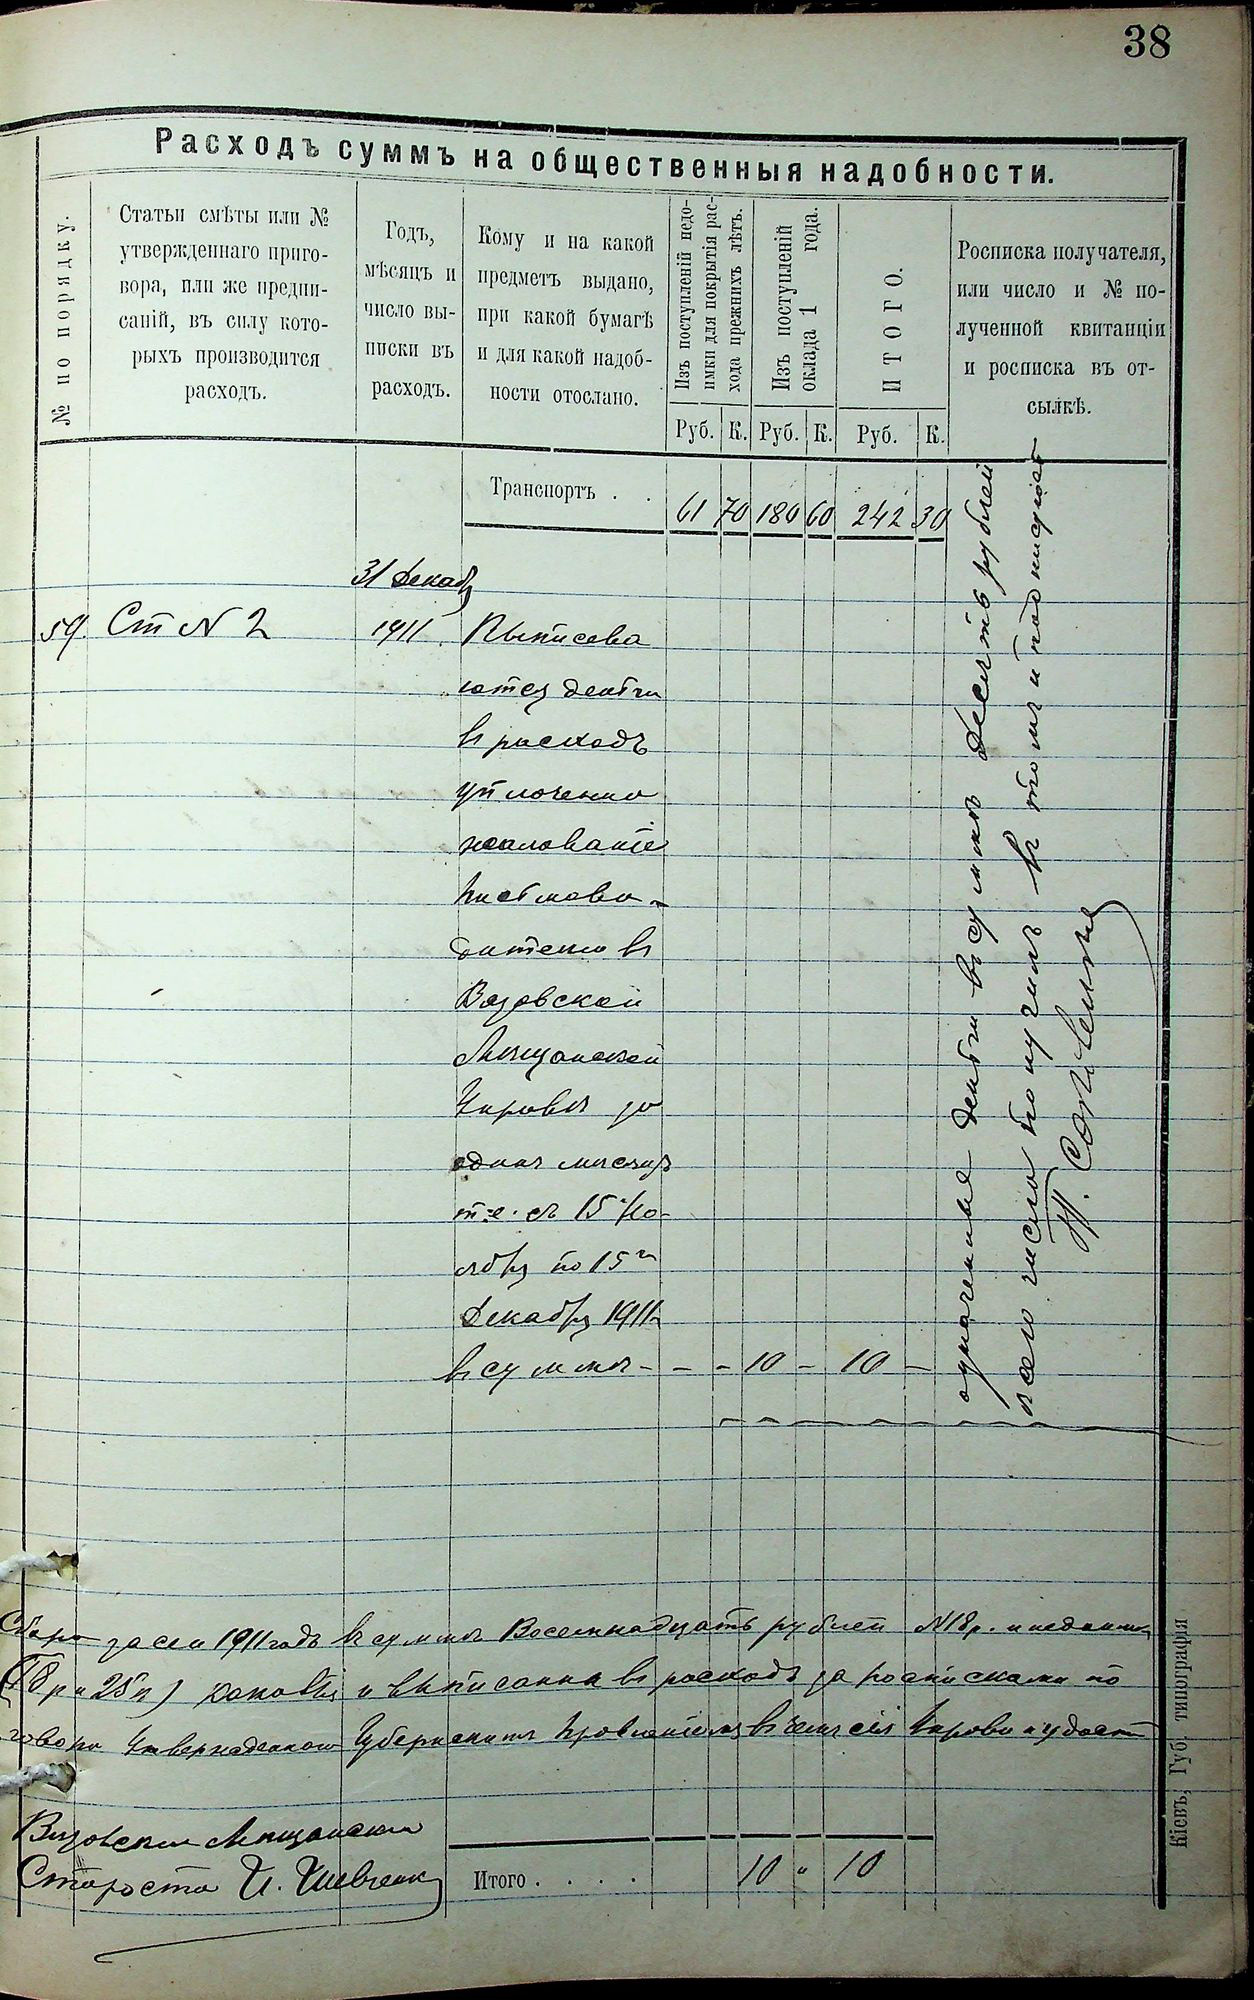 38
Расходъ суммъ на общественныя надобности.
№ по порядку.
Статьи смѣты или №
утвержденнаго приго-
вора, или же предпи-
саній, въ силу кото-
рыхъ производится
расходъ.
Годъ,
мѣсяцъ и
число вы-
писки въ
расходъ.
Кому и на какой
предметъ выдано,
при какой бумагѣ
и для какой надоб-
ности отослано.
Изъ поступленій недо-
имки для покрытія рас-
хода прежнихъ лѣтъ.
Изъ поступленій
оклада 1 года.
ИТОГО.
Росписка получателя,
или число и № по-
лученной квитанціи
и росписка въ от-
сылкѣ.
Руб. К. Руб. К. Руб. К.
Транспортъ . . 61 70 180 60 242 30
31 Декаб
59. Ст N 2 1911 Выписыва
ются деньги
въ расходъ
уплочено
жалованіе
письмово-
дителю въ
Вязовской
Мѣщанской
Управѣ за
одинъ мѣсяцъ
т.е. съ 15 Но-
ября по 15
Декабря 1911
въ суммѣ - - - 10 - 10 -
означенные деньги въ суммѣ десять рублей
сего числа получилъ въ томъ и подписуюсь
за сей 1911 годъ въ суммѣ Восемнадцать рублей
и выписанна въ расходъ за росписками по
говору Утвержденном Губернскимъ Правленіемъ въ чемъ сія Управа и удост
Вязовский Мещанский
Староста И. Шевченко
Итого . . . . 10 " 10
Кіевъ, Губ. типографія